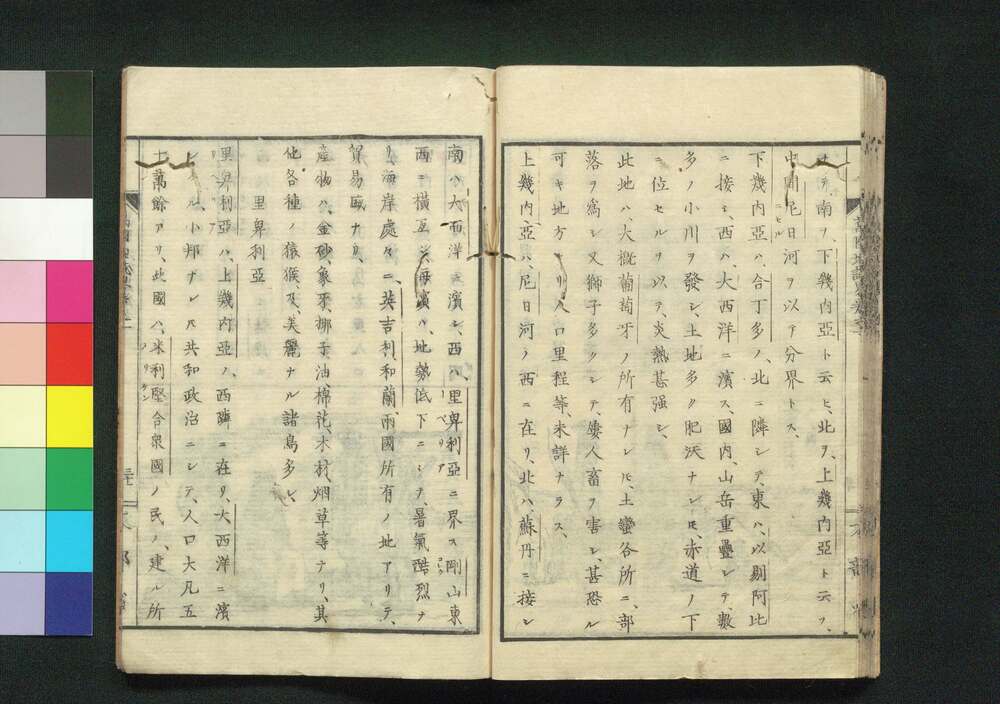 テ南ヲ、下幾內亞ト云ヒ、北ヲ、上幾內亞ト云フ、
中間尼日河ヲ以テ分界トス、
ニセル
下幾內亞ハ、合丁多ノ、北ニ隣シテ、東ハ、以剔阿比
ニ接シ、西ハ、大西洋ニ濱ス、國內、山岳重疊シテ、數
多ノ小川ヲ發シ、土地多ク肥沃ナレ𪜈、赤道ノ下
ニ位セルヲ以テ、炎熱甚强シ、
此地ハ、大槪葡萄牙ノ所有ナレ𪜈、土蠻各所ニ、部
落ヲ爲シ、又獅子多クシテ、屢人畜ヲ害シ、甚恐ル
可キ地方ナリ、人口里程等、未詳ナラス、
上幾內亞ハ、尼日河ノ西ニ在リ、北ハ、蘇丹ニ接シ
南ハ大西洋ニ濱シ、西ハ、里卑利亞ニ界ス剛山東
リベリア
コング
西ニ橫亙シ、海濱ハ、地勢低下ニシテ、暑氣酷烈ナ
リ、海岸處々ニ、英吉利、和蘭、兩國所有ノ地アリテ、
貿易盛ナリ、
產物ハ、金砂、象牙、椰子油、棉花、木材、烟草等ナリ、其
他各種ノ猿猴、及、美麗ナル諸鳥多シ、
里卑利亞
里卑利亞ハ、上幾內亞ノ、西隣ニ在リ、大西洋ニ濱
リベリア
シタル、小邦ナレ𪜈、共和政治ニシテ、人口大凡五
十萬餘アリ、此國ハ、米利堅合衆國ノ民ノ、建シ所
メリケン